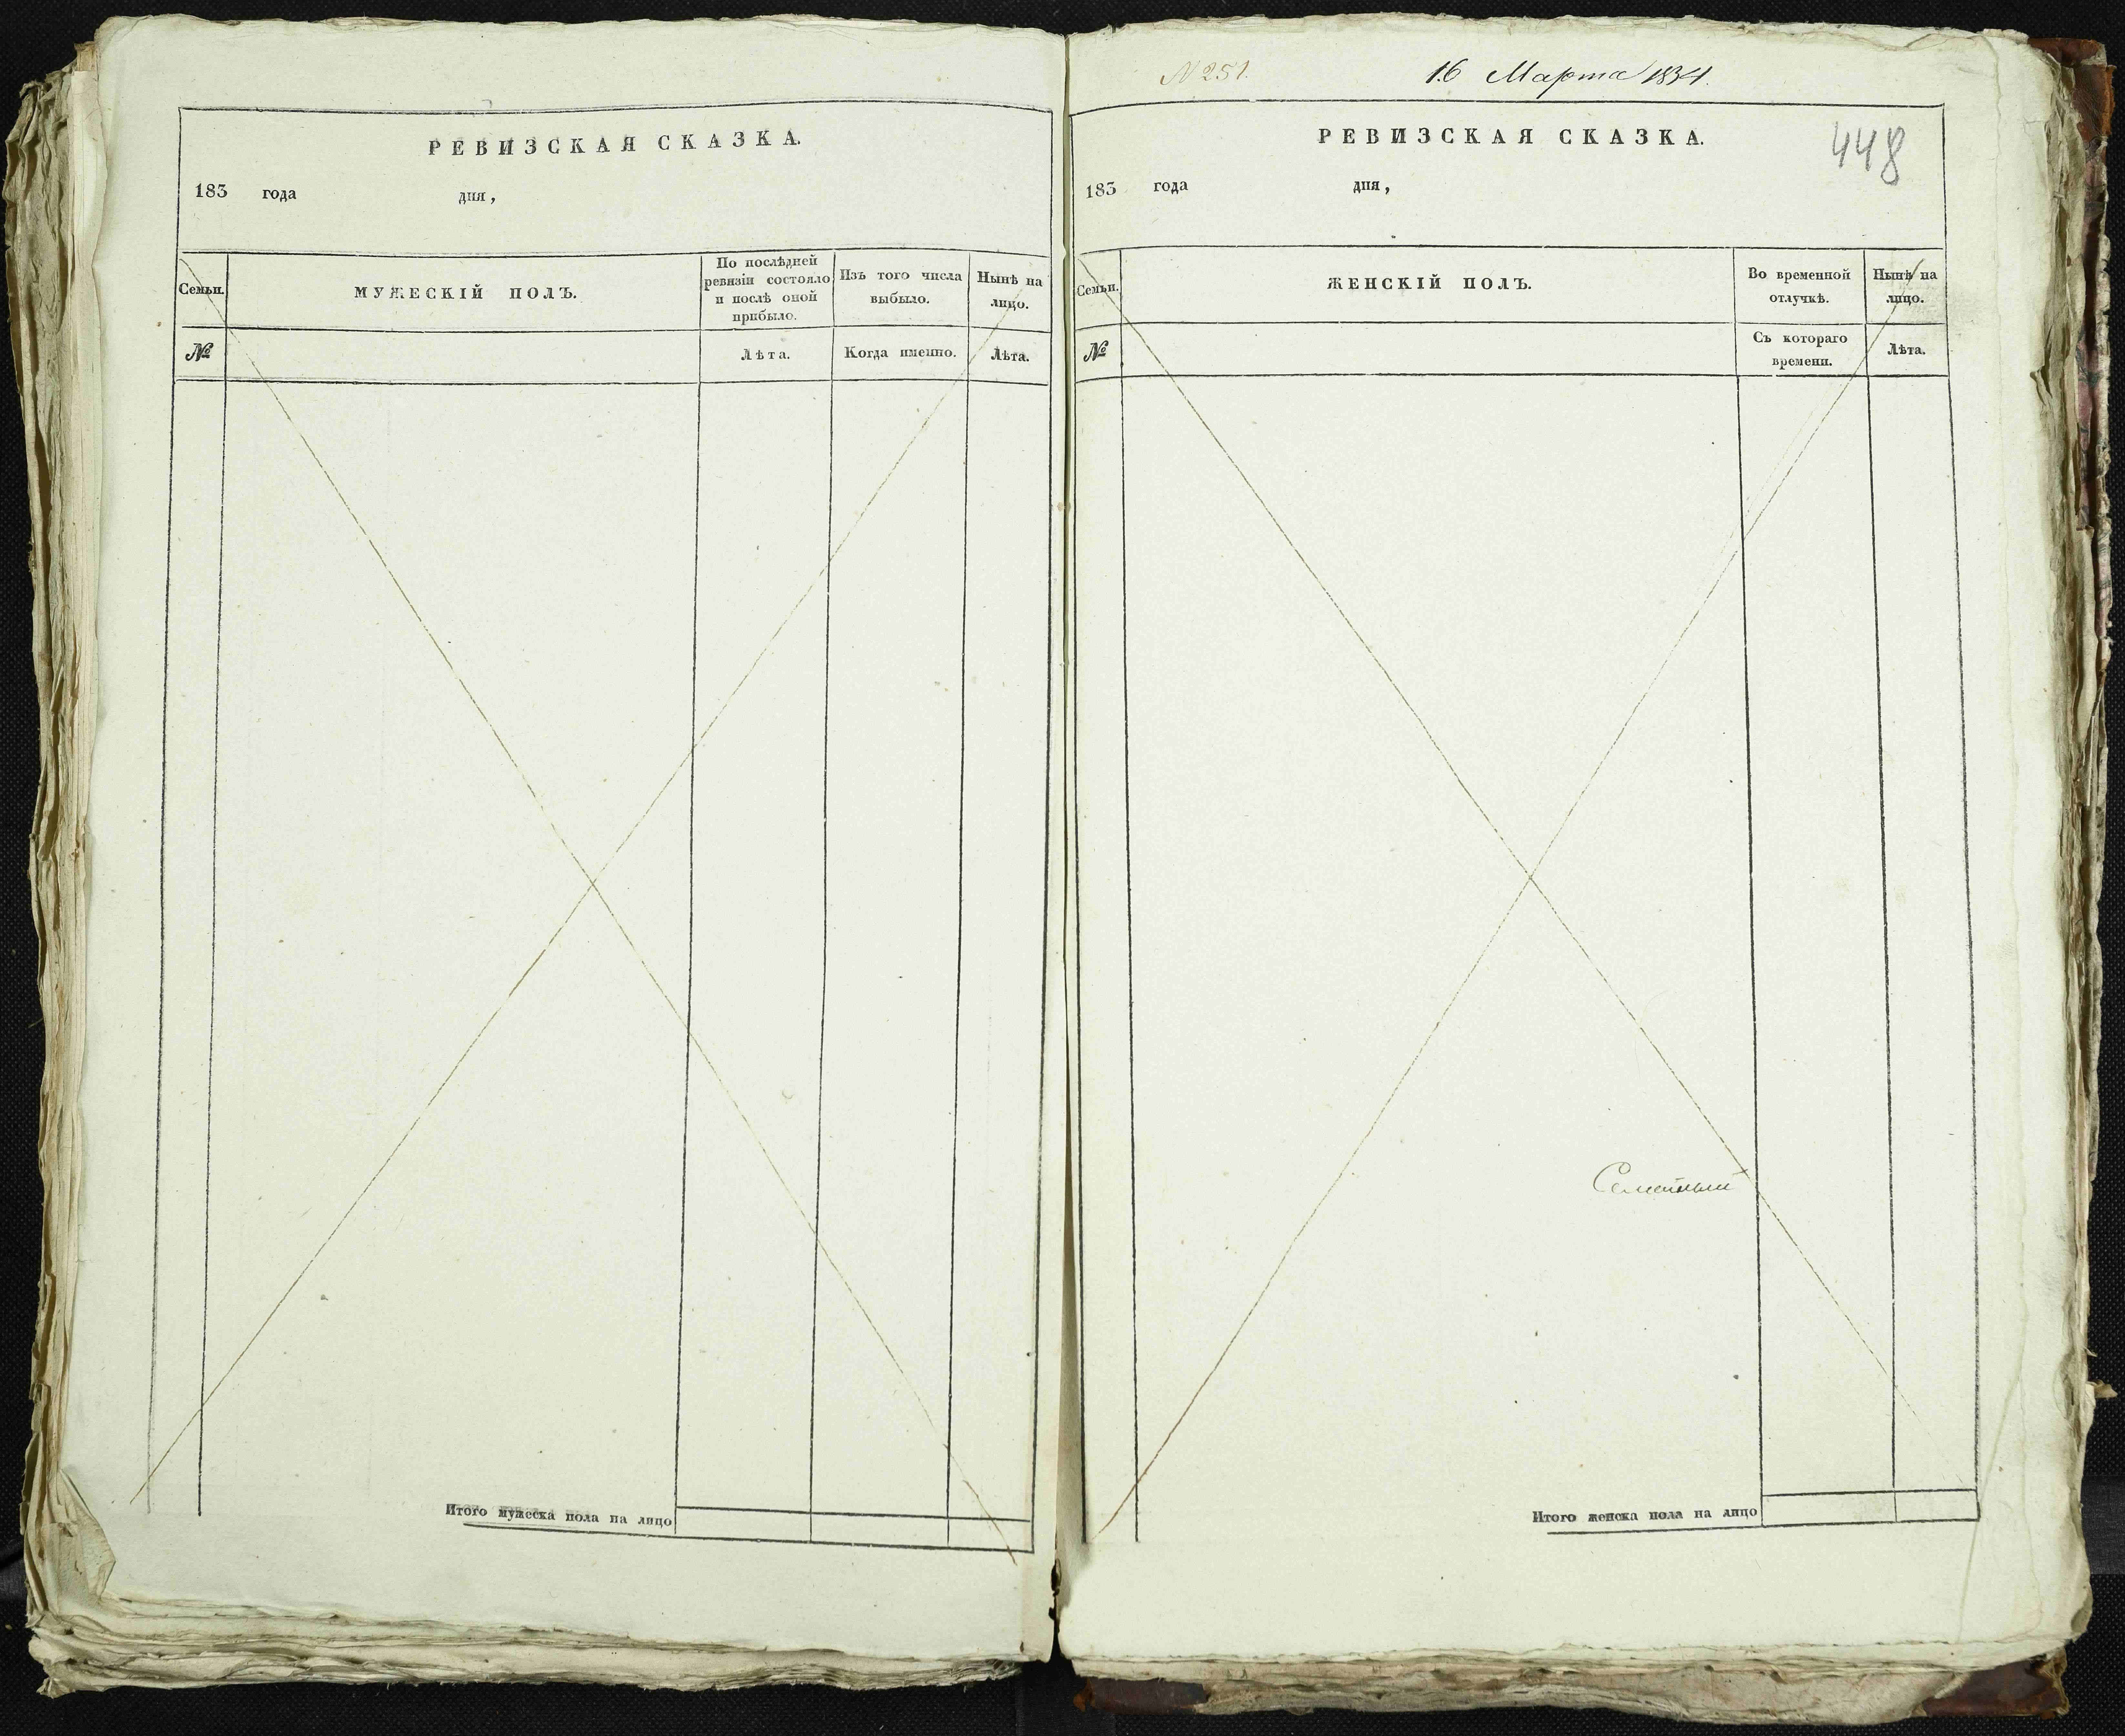 РЕВИЗСКАЯ СКАЗКА.
183 года дня,
Семьи.
МУЖЕСКІЙ ПОЛЪ.
По послѣдней
ревизіи состояло
и послѣ оной
прибыло.
Изъ того числа
выбыло.
Нынѣ на
лицо.
№
Лѣта.
Когда именно.
Лѣта.
Итого мужеска пола на лицо
№ 251.
16 Марта 1834.
РЕВИЗСКАЯ СКАЗКА.
448
183 года дня,
Семьи.
ЖЕНСКІЙ ПОЛЪ.
Во временной
отлучкѣ.
Нынѣ на
лицо.
№
Съ котораго
времени.
Лѣта.
Итого женска пола на лицо